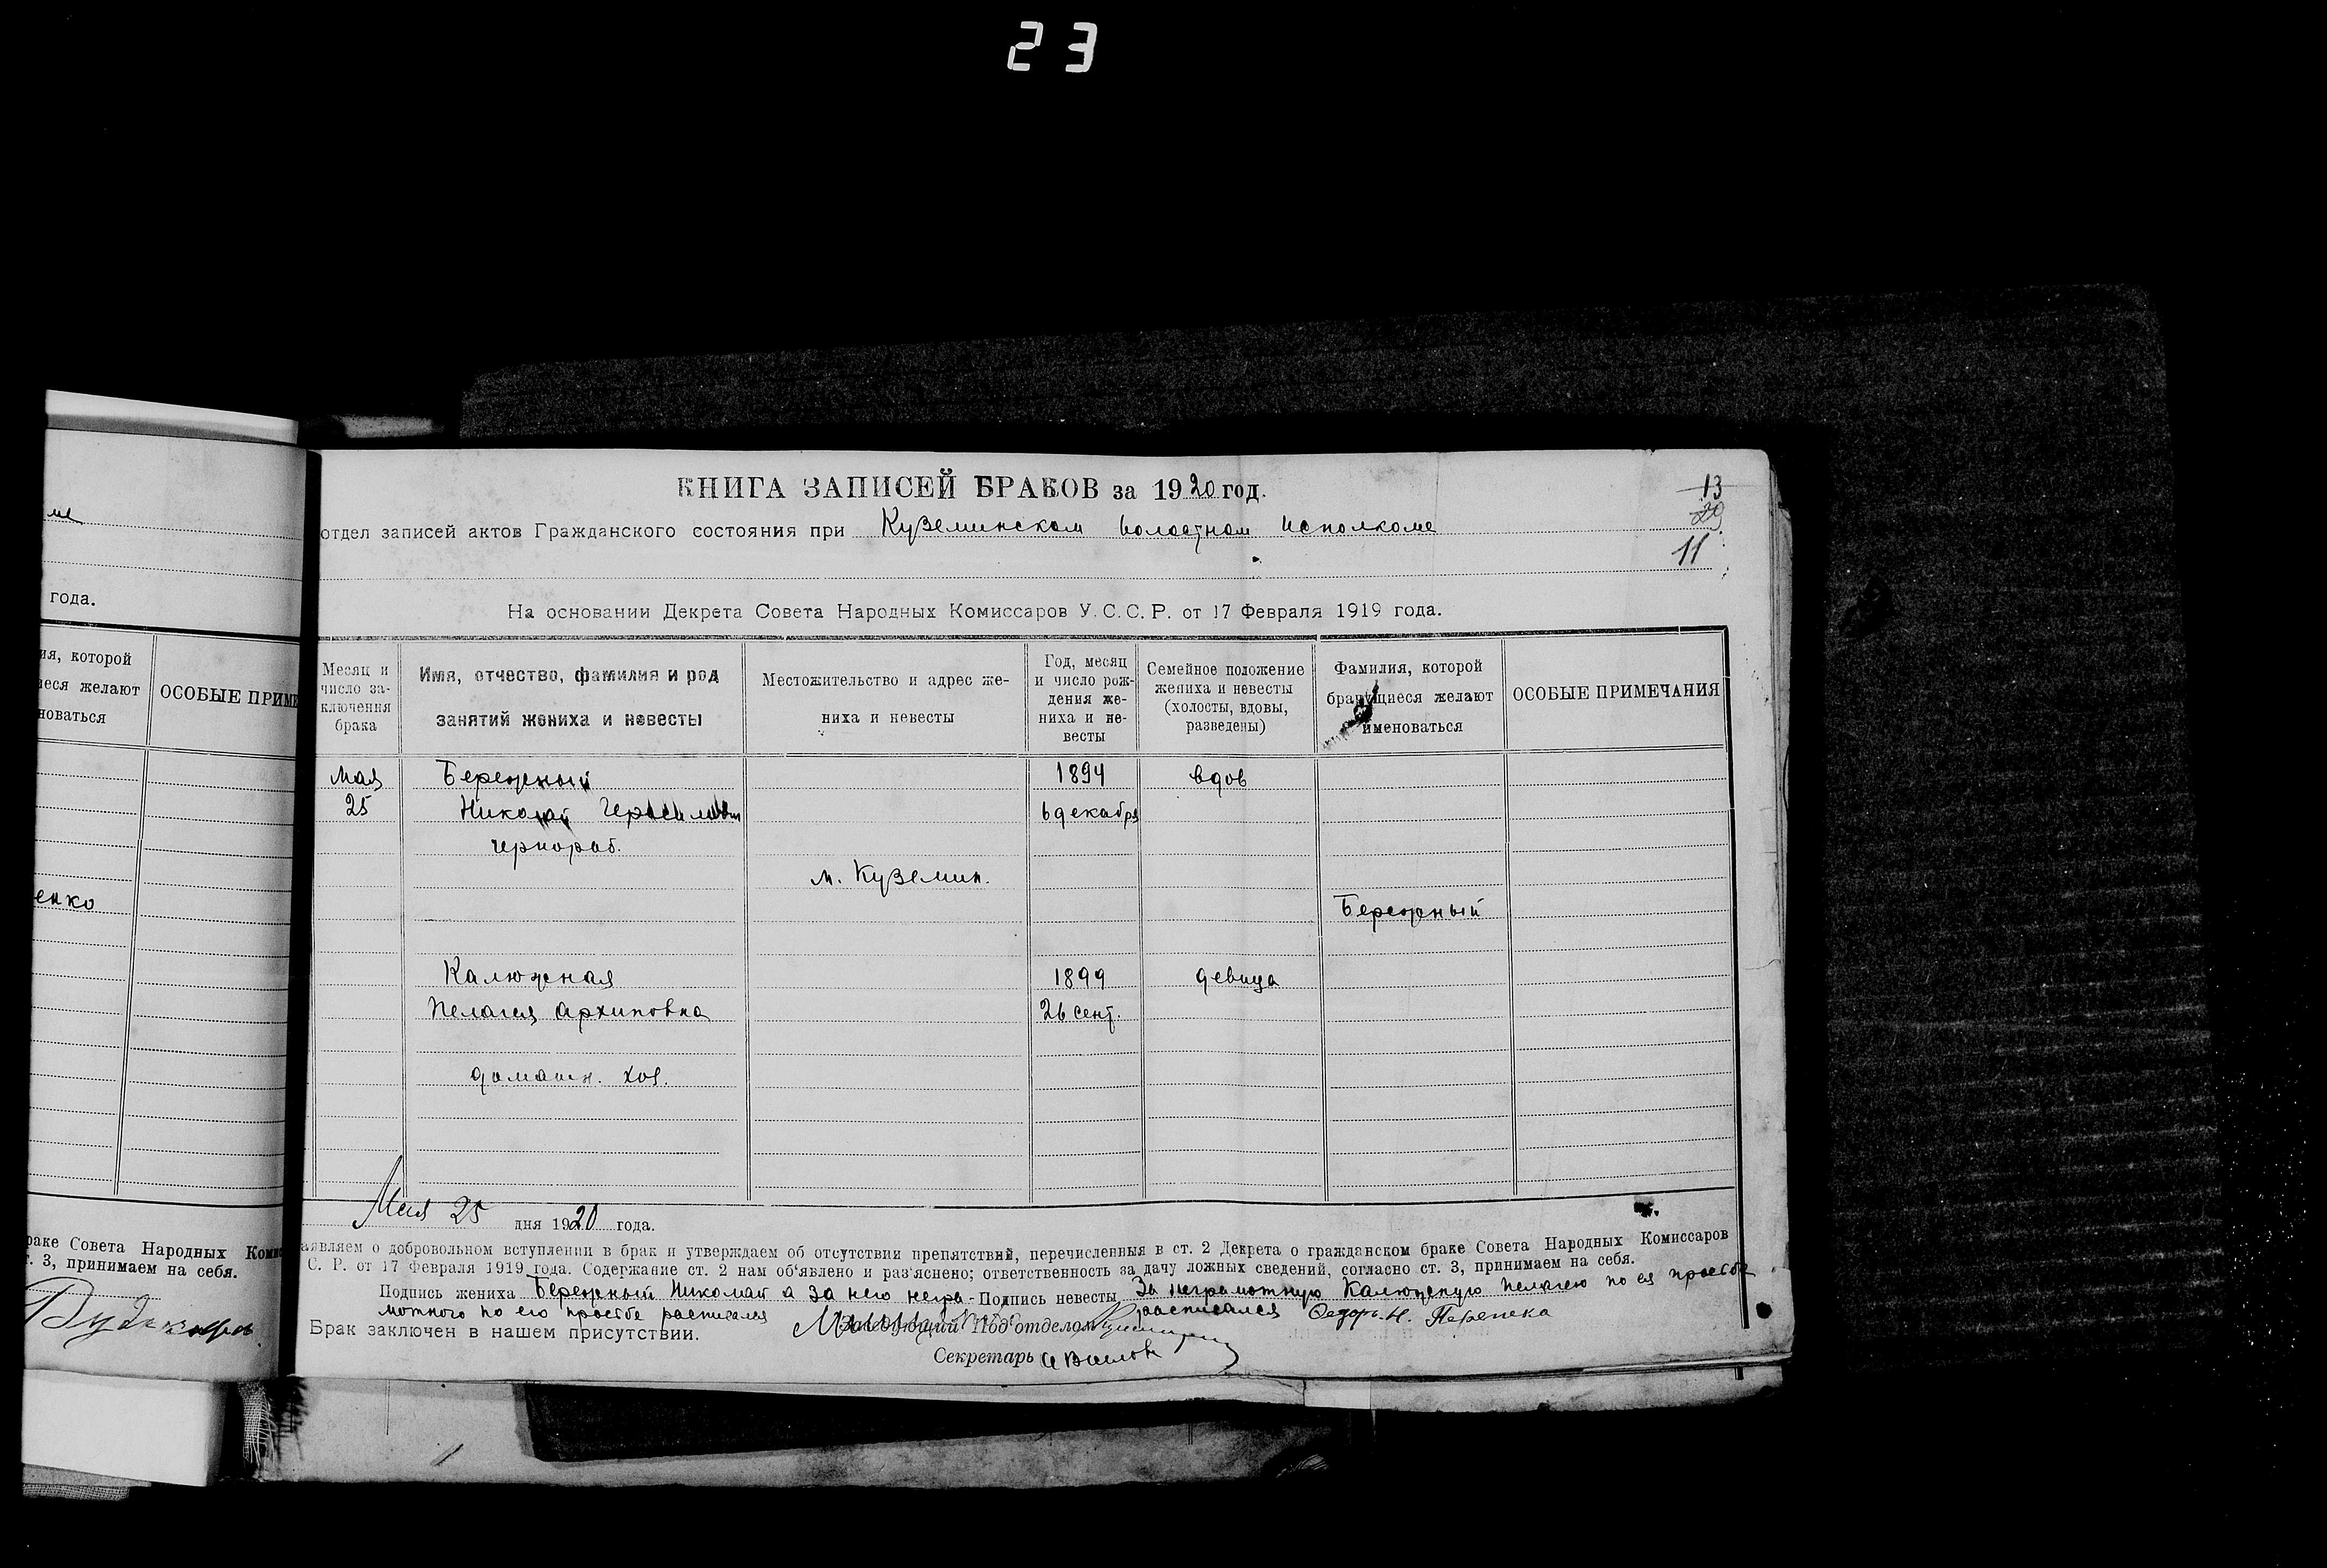 23
КНИГА ЗАПИСЕЙ БРАКОВ за 1920 год.
13
29
11
отдел записей актов Гражданского состояния при Куземинском волостном исполкоме
На основании Декрета Совета Народных Комиссаров У.С.С.Р. от 17 Февраля 1919 года.
ме
года.
ия, которой
иеся желают
новаться
ОСОБЫЕ ПРИМЕ
енко
Месяц и число за-ключения брака
Имя, отчество, фамилия и род занятий жениха и невесты
Местожительство и адрес же-ниха и невесты
Год, месяц и число рож-дения же-ниха и не-весты
Семейное положение жениха и невесты (холосты, вдовы, разведены)
Фамилия, которой брачущиеся желают именоваться
ОСОБЫЕ ПРИМЕЧАНИЯ
Мая Бережный 1894 вдов
25 Николай Герасимович 6 декабря
чернораб.
м. Куземин.
Бережный
Калюжная 1899 девица
Пелагея Архиповна 26 сент.
домашн. хоз.
Мая 25 дня 1920 года.
аявляем о добровольном вступлении в брак и утверждаем об отсутствии препятствий, перечисленныя в ст. 2 Декрета о гражданском браке Совета Народных Комиссаров
С. Р. от 17 Февраля 1919 года. Содержание ст. 2 нам об'явлено и раз'яснено; ответственность за дачу ложных сведений, согласно ст. 3, принимаем на себя.
Подпись жениха Бережный Николай а за него негра- Подпись невесты За неграмотную Калюжную Пелагею по ея просьбе
мотного по его просьбе расписался расписался Федоръ Н. Перепека
Брак заключен в нашем присутствии. Заведующий Под'отделом
Секретарь
раке Совета Народных Комис
т. 3, принимаем на себя.